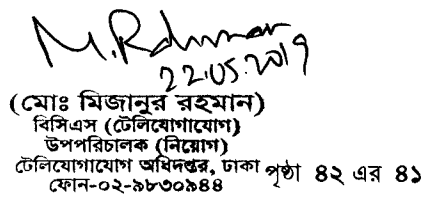 M. Rahman
22.05.2019
(মোঃ মিজানুর রহমান)
বিসিএস (টেলিযোগাযোগ)
উপপরিচালক (নিয়োগ)
টেলিযোগাযোগ অধিদপ্তর, ঢাকা
ফোন-০২-৯৮৩০৯৪৪
পৃষ্ঠা ৪২ এর ৪১